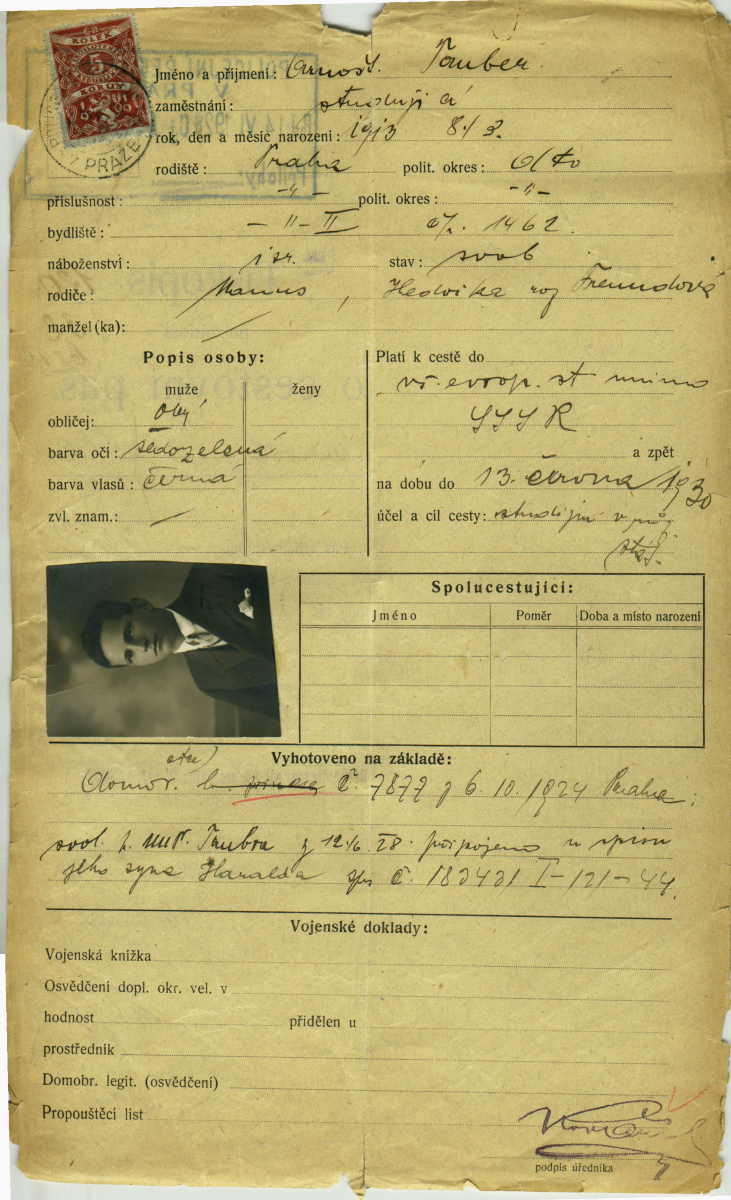 KOLEK
5
KORUN
PRAZE
Jméno a příjmení: Arnošt. Tauber.
zaměstnání: studující
rok, den a měsíc narození: 1913 8./3.
rodiště: Praha polit. okres: dtto
příslušnost: -"- polit. okres: -"-
bydliště: -"- II čp. 1462.
náboženství: isr. stav: svob
rodiče: , Hedvika roz Freundová
manžel(ka): /
Popis osoby:
muže ženy
obličej: obl
barva očí: šedozelená
barva vlasů: černá
zvl. znam.: /
Platí k cestě do
vš. evrop. st mimo
SSSR
a zpět
na dobu do 13. června 1930
účel a cíl cesty: studijní v
Spolucestující:
Jméno Poměr Doba a místo narození
Vyhotoveno na základě:
otce)
Domov. l. č. 7877 z 6. 10. 1924 Praha;
svol. p. Taubra z 12./6. 28. připojeno u spisu
jeho syna Haralda č. 182421 I-121-44.
Vojenské doklady:
Vojenská knížka
Osvědčení dopl. okr. vel. v
hodnost přidělen u
prostředník
Domobr. legit. (osvědčení)
Propouštěcí list
podpis úředníka